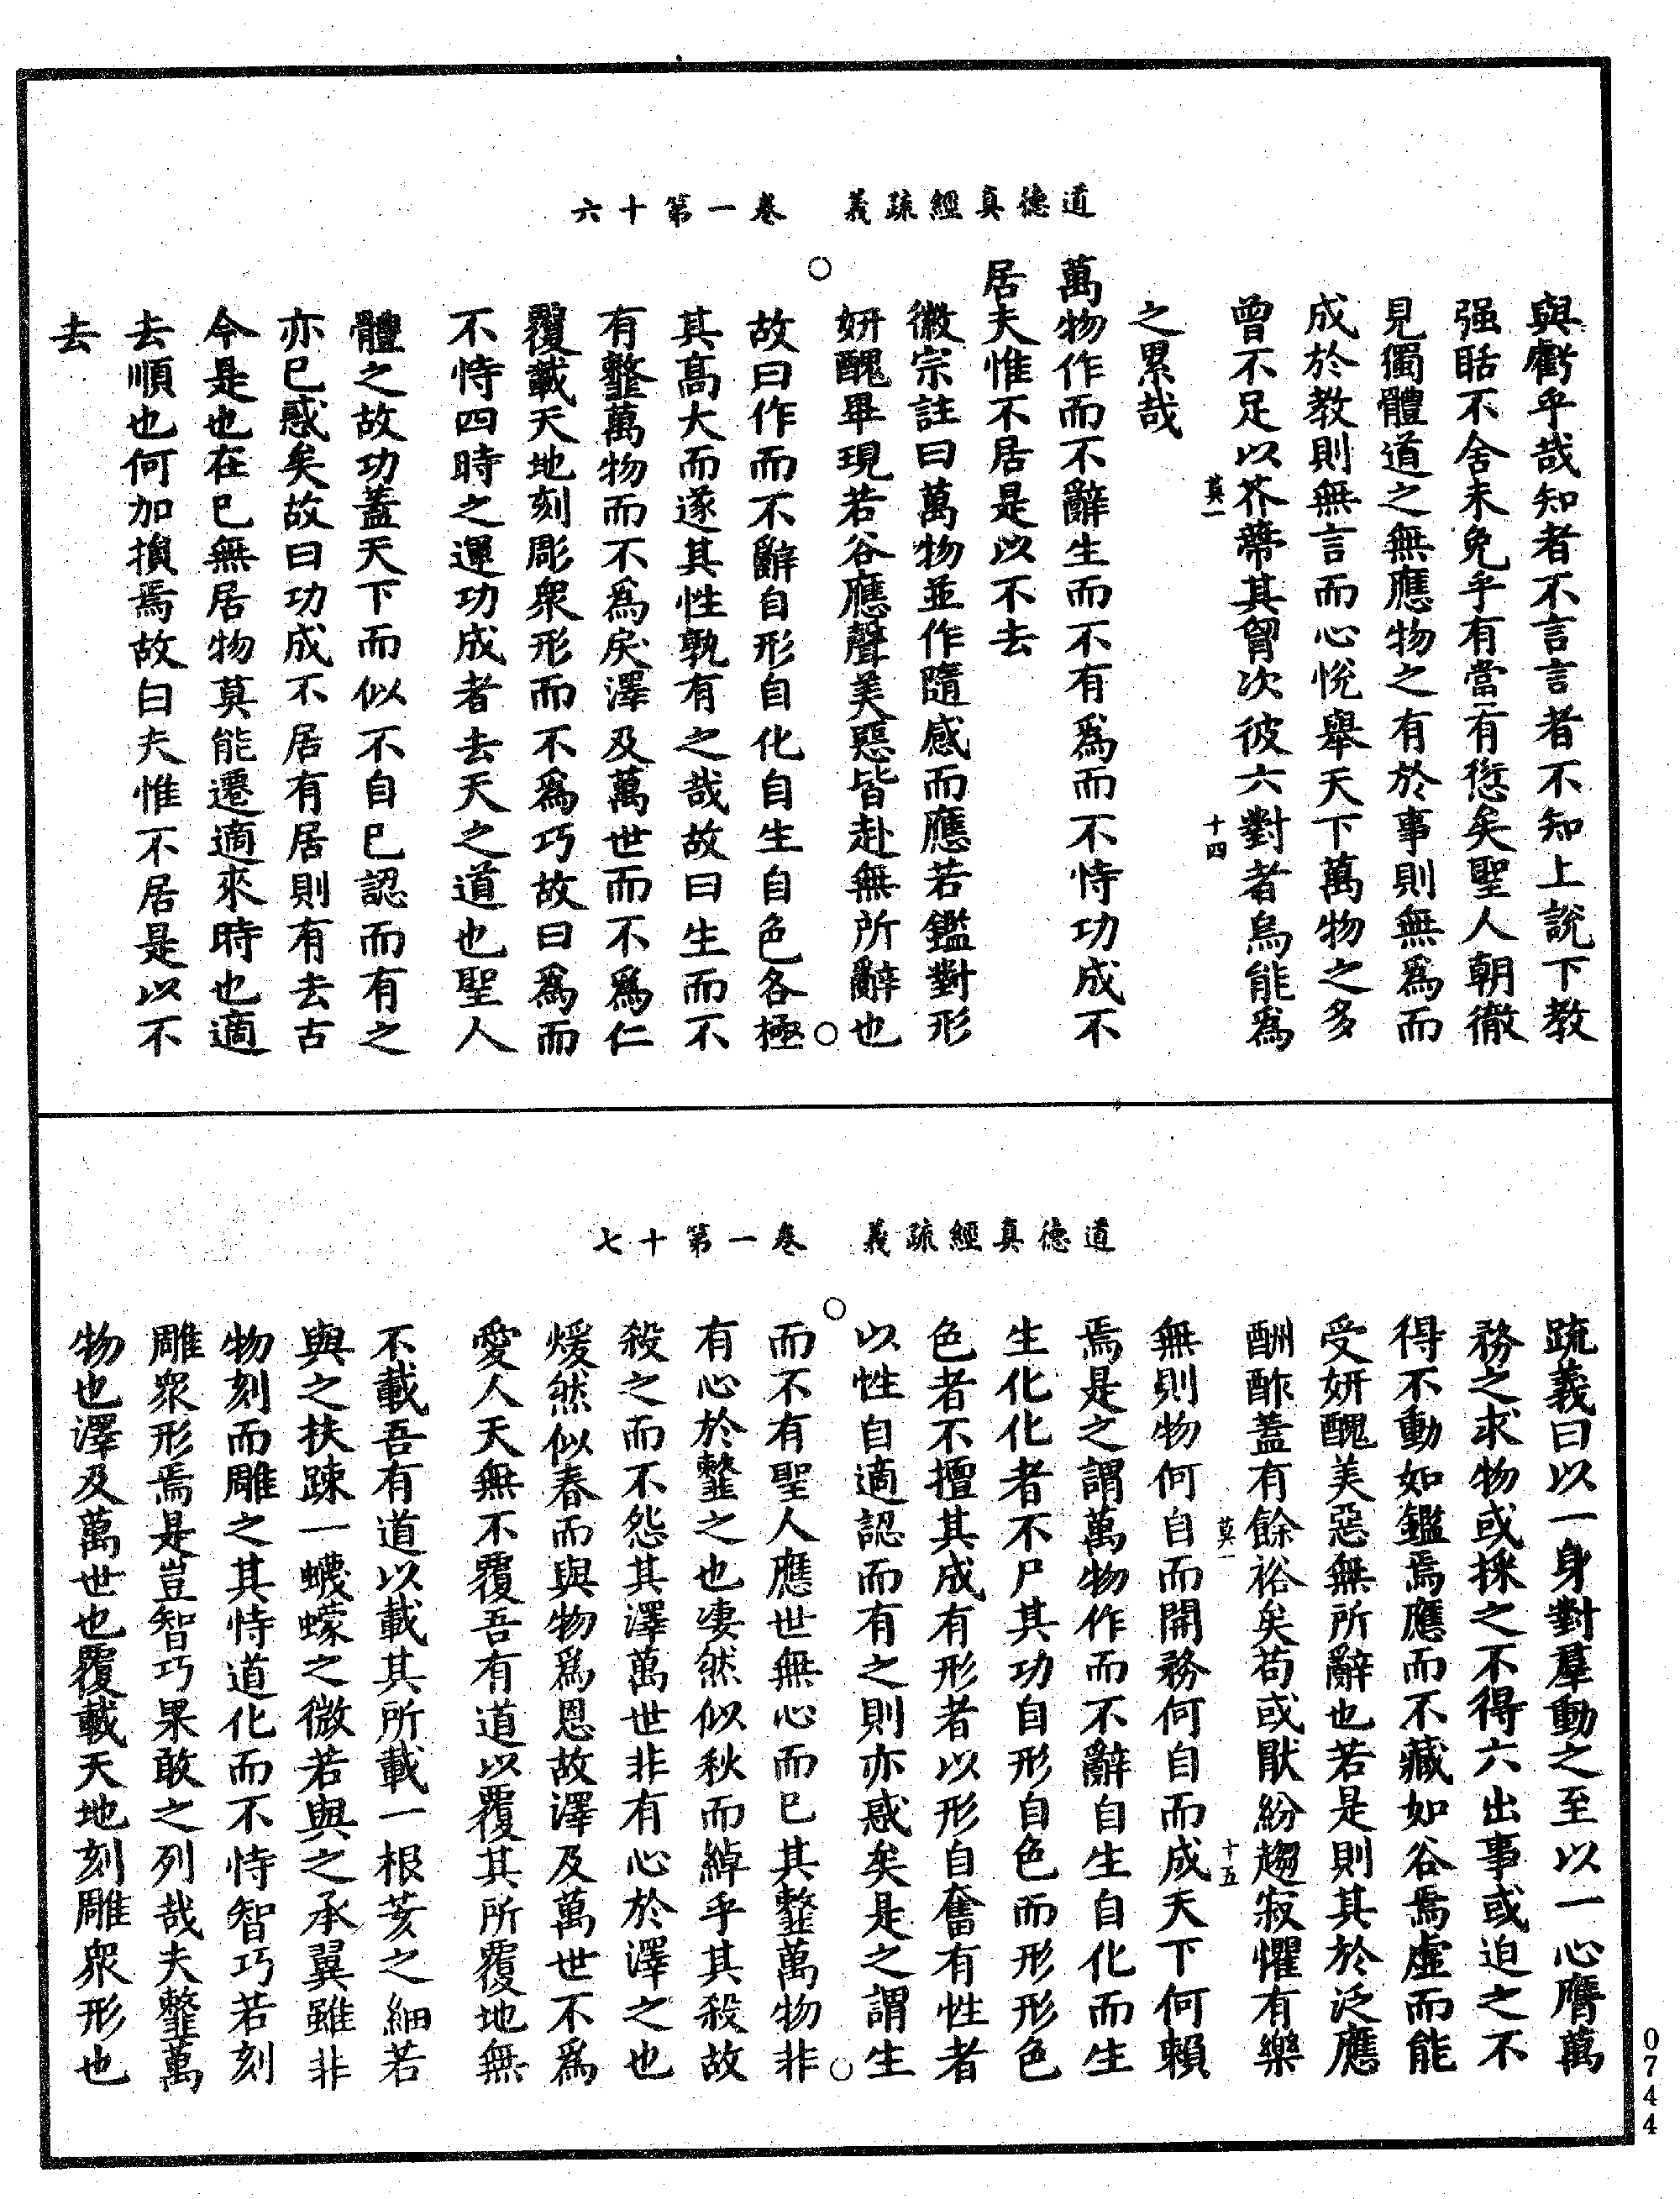 道德真經疏義　卷一第十六
與虧乎哉知者不言言者不知上說下教
强聒不舍未免乎有當有愆矣聖人朝徹
見獨體道之無應物之有於事則無為而
成於教則無言而心悅舉天下萬物之多
曾不足以芥蔕其胷次彼六對者烏能爲
莫一　十四
之累哉
萬物作而不辭生而不有爲而不恃功成不
居夫惟不居是以不去
徽宗註曰萬物並作隨感而應若鑑對形
妍醜畢現若谷應聲美惡皆赴無所辭也
故曰作而不辭自形自化自生自色各極
其高大而遂其性孰有之哉故曰生而不
有䪡萬物而不爲戾澤及萬世而不爲仁
覆載天地刻彫衆形而不爲巧故曰爲而
不恃四時之運功成者去天之道也聖人
體之故功蓋天下而似不自已認而有之
亦已惑矣故曰功成不居有居則有去古
今是也在已無居物莫能遷適來時也適
去順也何加損焉故曰夫惟不居是以不
去
道德真經疏義　卷一第十七
疏義曰以一身對羣動之至以一心膺萬
務之求物或採之不得六出事或迫之不
得不動如鑑焉應而不藏如谷焉虛而能
受妍醜美惡無所辭也若是則其於泛應
酬酢蓋有餘裕矣苟或猒紛趨寂懼有樂
莫一　十五
無則物何自而開務何自而成天下何賴
焉是之謂萬物作而不辭自生自化而生
生化化者不尸其功自形自色而形形色
色者不擅其成有形者以形自奮有性者
以性自適認而有之則亦惑矣是之謂生
而不有聖人應世無心而已其䪡萬物非
有心於䪡之也凄然似秋而綽乎其殺故
殺之而不怨其澤萬世非有心於澤之也
煖然似春而與物爲恩故澤及萬世不爲
愛人天無不覆吾有道以覆其所覆地無
不載吾有道以載其所載一根荄之細若
與之扶踈一蠛蠓之微若與之承翼雖非
物刻而雕之其恃道化而不恃智巧若刻
雕衆形焉是豈智巧果敢之列哉夫䪡萬
物也澤及萬世也覆載天地刻雕衆形也
0744